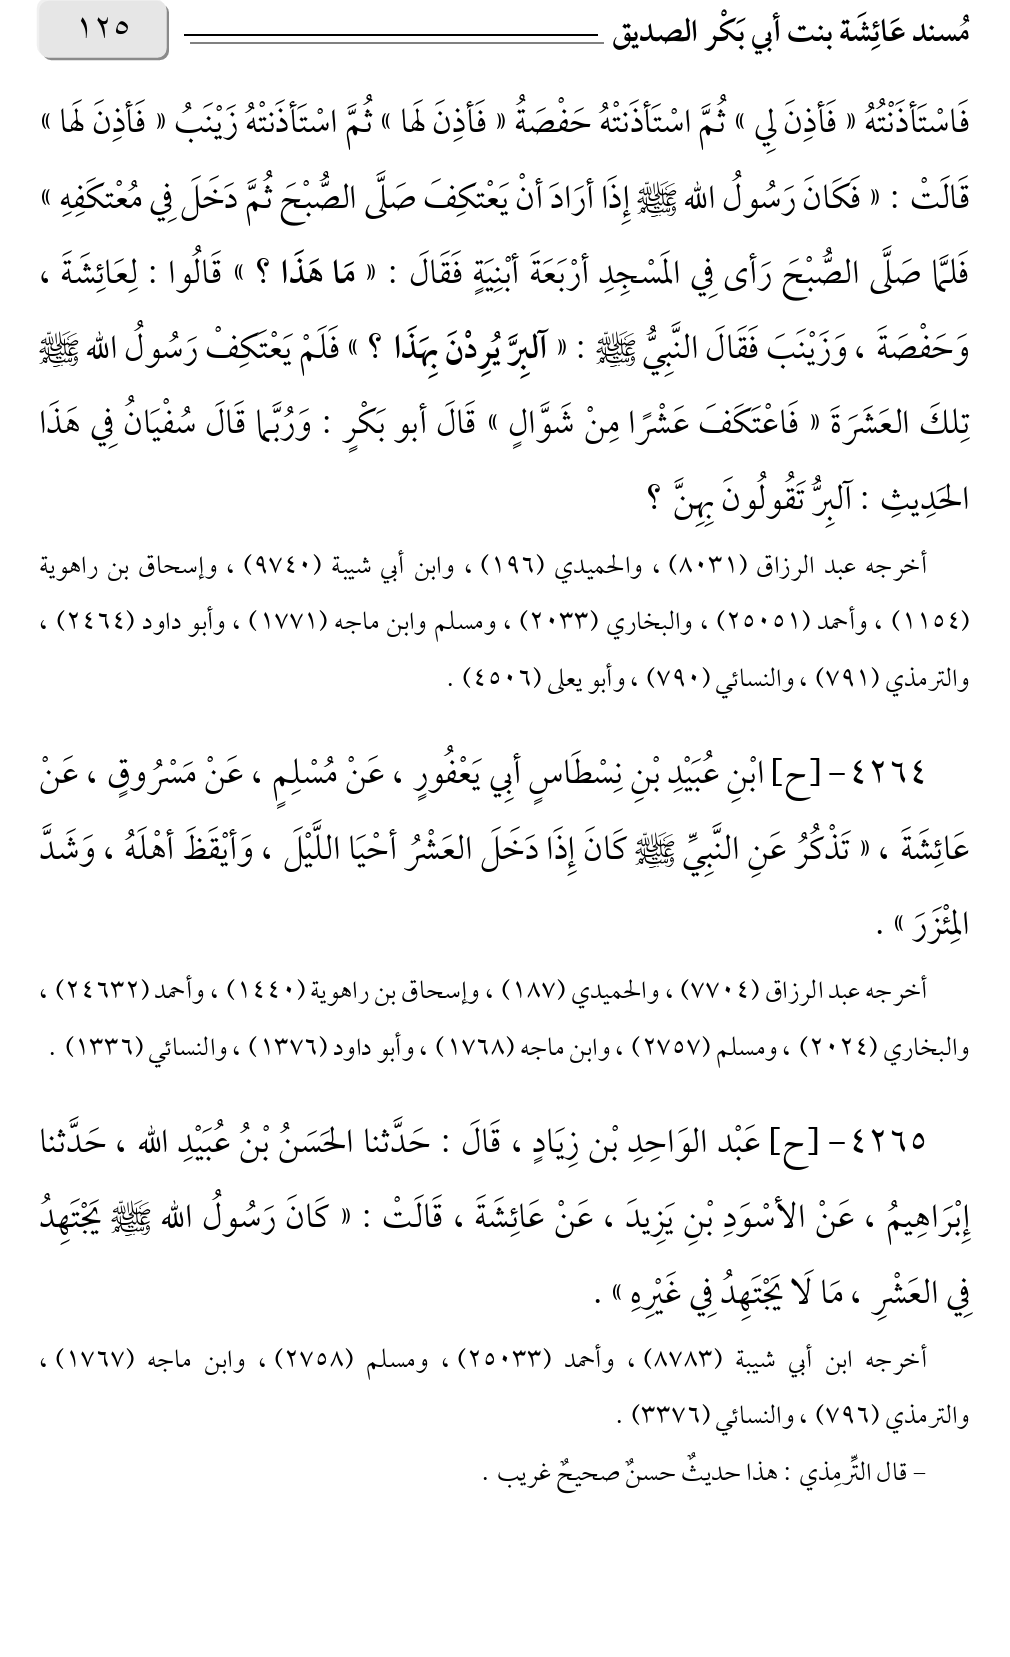 مُسند عَائِشَة بنت أبي بَكْر الصديق ١٢٥
فَاسْتَأذَنْتُهُ « فَأذِنَ لِي » ثُمَّ اسْتَأذَنَتْهُ حَفْصَةُ « فَأذِنَ لَها » ثُمَّ اسْتَأذَنَتْهُ زَيْنَبُ « فَأذِنَ لَها »
قَالَتْ : « فَكَانَ رَسُولُ الله ﷺ إِذَا أرَادَ أنْ يَعْتكِفَ صَلَّى الصُّبْحَ ثُمَّ دَخَلَ فِي مُعْتكَفِهِ »
فَلمَّا صَلَّى الصُّبْحَ رَأى فِي المَسْجِدِ أرْبَعَةَ أبْنِيَةٍ فَقَالَ : « مَا هَذَا ؟ » قَالُوا : لِعَائِشَةَ ،
وَحَفْصَةَ ، وَزَيْنَبَ فَقَالَ النَّبِيُّ ﷺ : « آلبِرَّ يُرِدْنَ بِهَذَا ؟ » فَلَمْ يَعْتَكِفْ رَسُولُ الله ﷺ
تِلكَ العَشَرَةَ « فَاعْتَكَفَ عَشْرًا مِنْ شَوَّالٍ » قَالَ أبو بَكْرٍ : وَرُبَّما قَالَ سُفْيَانُ فِي هَذَا
الحَدِيثِ : آلبِرُّ تَقُولُونَ بِهِنَّ ؟
أخرجه عبد الرزاق (٨٠٣١) ، والحميدي (١٩٦) ، وابن أبي شيبة (٩٧٤٠) ، وإسحاق بن راهوية
(١١٥٤) ، وأحمد (٢٥٠٥١) ، والبخاري (٢٠٣٣) ، ومسلم وابن ماجه (١٧٧١) ، وأبو داود (٢٤٦٤) ،
والترمذي (٧٩١) ، والنسائي (٧٩٠) ، وأبو يعلى (٤٥٠٦) .
٤٢٦٤- [ح] ابْنِ عُبَيْدِ بْنِ نِسْطَاسٍ أبِي يَعْفُورٍ ، عَنْ مُسْلِمٍ ، عَنْ مَسْرُوقٍ ، عَنْ
عَائِشَةَ ، « تَذْكُرُ عَنِ النَّبِيِّ ﷺ كَانَ إِذَا دَخَلَ العَشْرُ أحْيَا اللَّيْلَ ، وَأيْقَظَ أهْلَهُ ، وَشَدَّ
المِئْزَرَ » .
أخرجه عبد الرزاق (٧٧٠٤) ، والحميدي (١٨٧) ، وإسحاق بن راهوية (١٤٤٠) ، وأحمد (٢٤٦٣٢) ،
والبخاري (٢٠٢٤) ، ومسلم (٢٧٥٧) ، وابن ماجه (١٧٦٨) ، وأبو داود (١٣٧٦) ، والنسائي (١٣٣٦) .
٤٢٦٥- [ح] عَبْد الوَاحِدِ بْن زِيَادٍ ، قَالَ : حَدَّثنا الحَسَنُ بْنُ عُبَيْدِ الله ، حَدَّثنا
إِبْرَاهِيمُ ، عَنْ الأسْوَدِ بْنِ يَزِيدَ ، عَنْ عَائِشَةَ ، قَالَتْ : « كَانَ رَسُولُ الله ﷺ يَجْتَهِدُ
فِي العَشْرِ ، مَا لَا يَجْتَهِدُ فِي غَيْرِهِ » .
أخرجه ابن أبي شيبة (٨٧٨٣) ، وأحمد (٢٥٠٣٣) ، ومسلم (٢٧٥٨) ، وابن ماجه (١٧٦٧) ،
والترمذي (٧٩٦) ، والنسائي (٣٣٧٦) .
– قال التِّرمِذي : هذا حديثٌ حسنٌ صحيحٌ غريب .